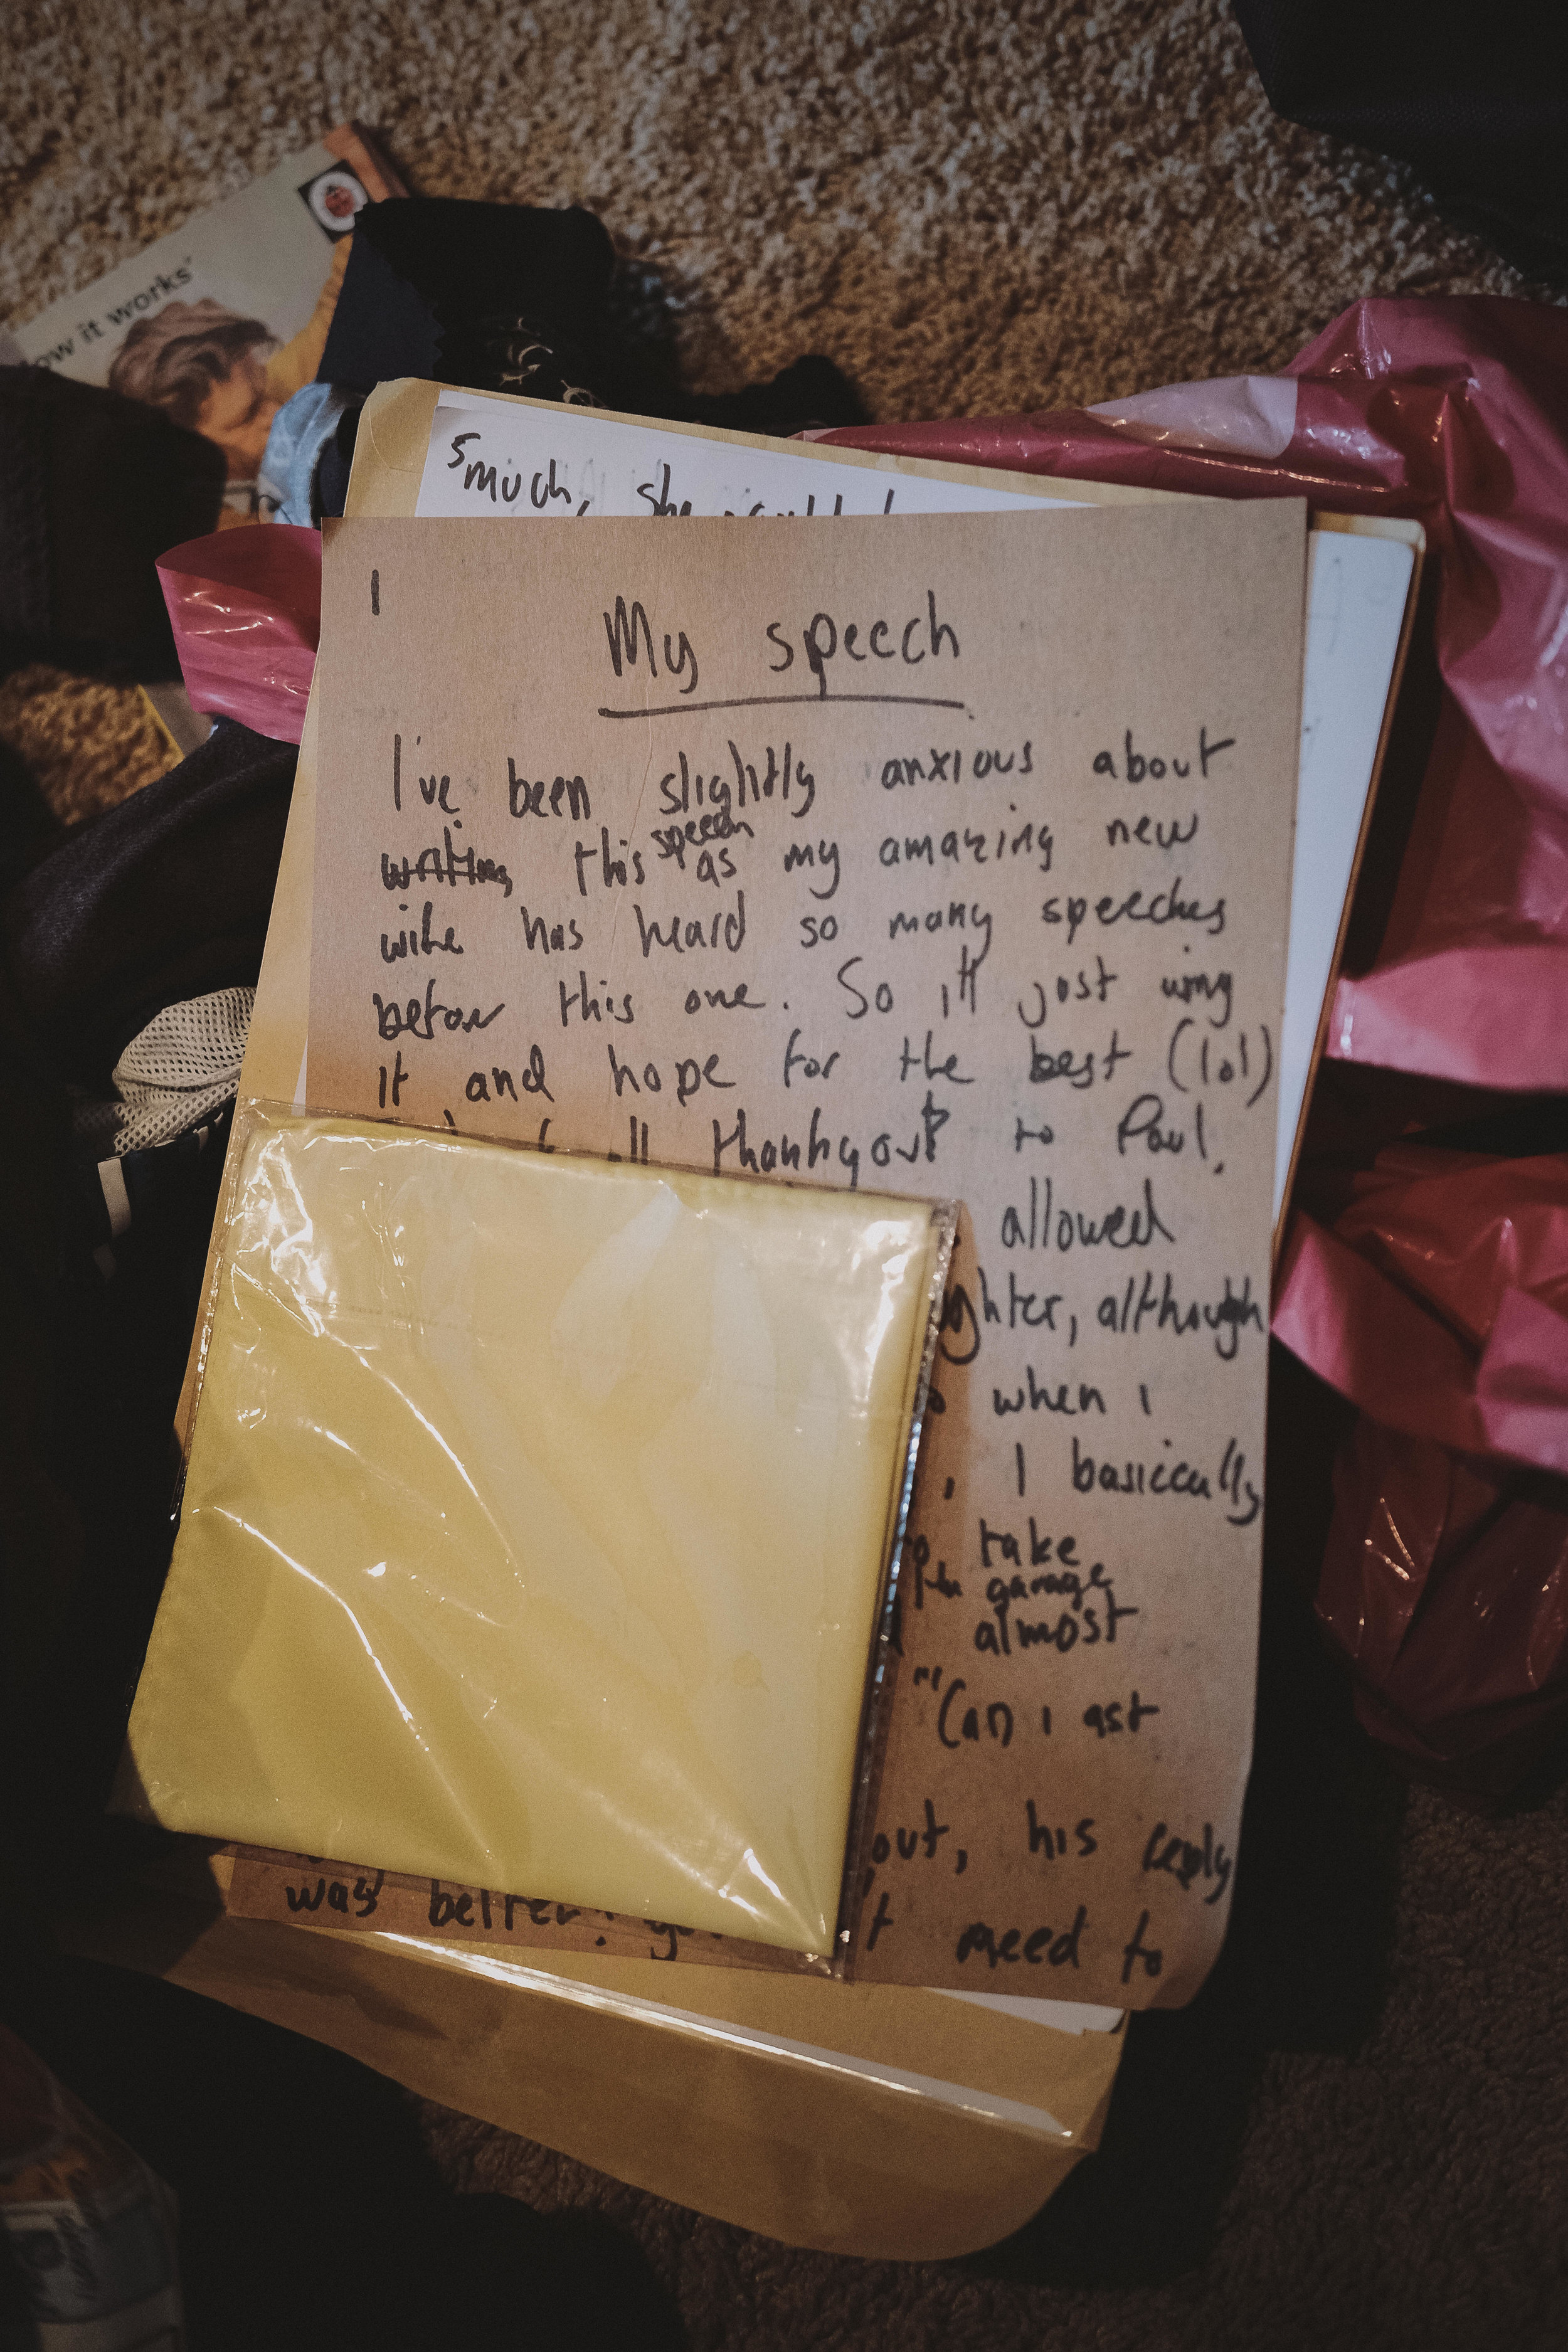 ow it works'
5
much, she
1
My speech
I've been slightly anxious about
writing this speech as my amazing new
wife has heard so many speeches
before this one. So i'll just wing
it and hope for the best (lol)
thankyou to Paul,
allowed
ghter, although
when i
, I basiccally
take
the garage
almost
"Can i ask
out, his reply
was better. need to